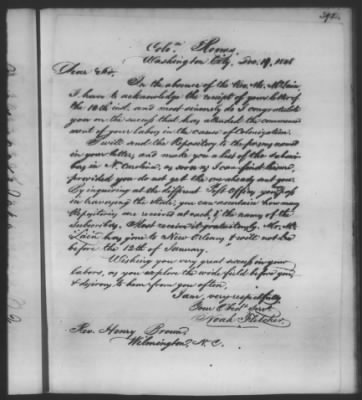 Col.n Rooms,
Washington City, Dec. 19, 1848
Dear Sir,
In the absence of the Rev. Mr. McLain,
I have to acknowledge the receipt of your letter of
the 16th inst. and most sincerely do I congratulate
you on the success that has attended the commence
ment of your labors in the cause of Colonization.
I will send the Repository to the persons named
in your letter, and make you a list of the subscri
bers in N. Carolina, as soon as I can find time,
provided you do not get the one already sent you.
By inquiring at the different Post Offices, you
in traversing the State, you can ascertain how many
Repositories are received at each, & the names of the
Subscribers. Most receive it gratuitously. Mr. Mc
Lain has gone to New Orleans, & will not be
before the 12th of January.
Wishing you very great success in your
labors, as you explore the wide field before you
& to hear from you often,
I am, very respectfully
Your Obdt Servt
Noah Fletcher
Rev. Henry Brown,
Wilmington, N. C.